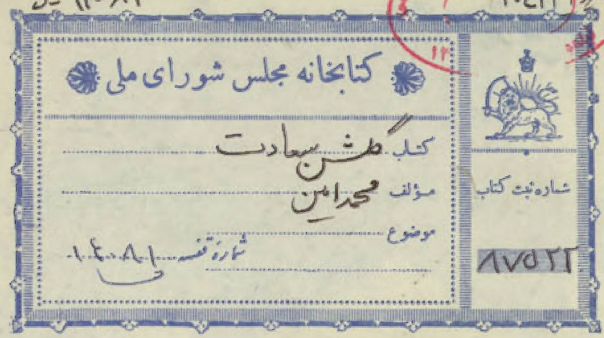 کتابخانه مجلس شورای ملی
کتاب گلشن سعادت
مؤلف محمد امین
موضوع
شماره قفسه
شماره ثبت کتاب
۸۷۵۲۲